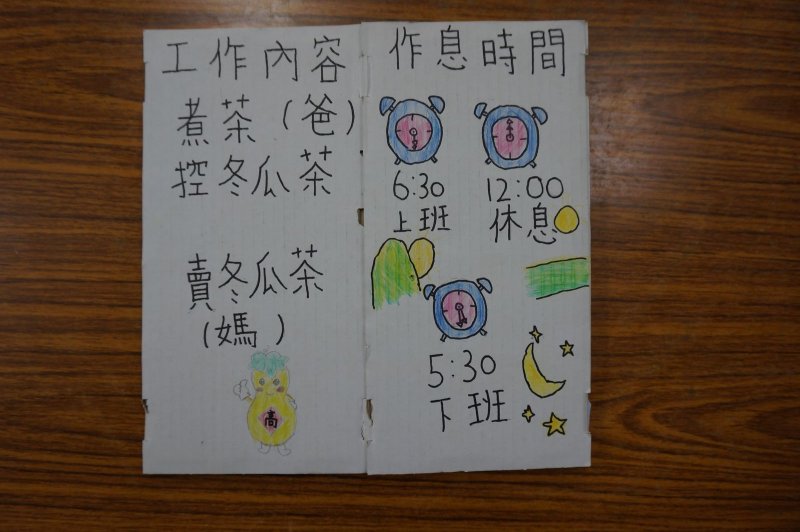 工作內容
煮茶(爸)
控冬瓜茶
賣冬瓜茶
(媽)
高
作息時間
6:30
上班
12:00
休息
5:30
下班